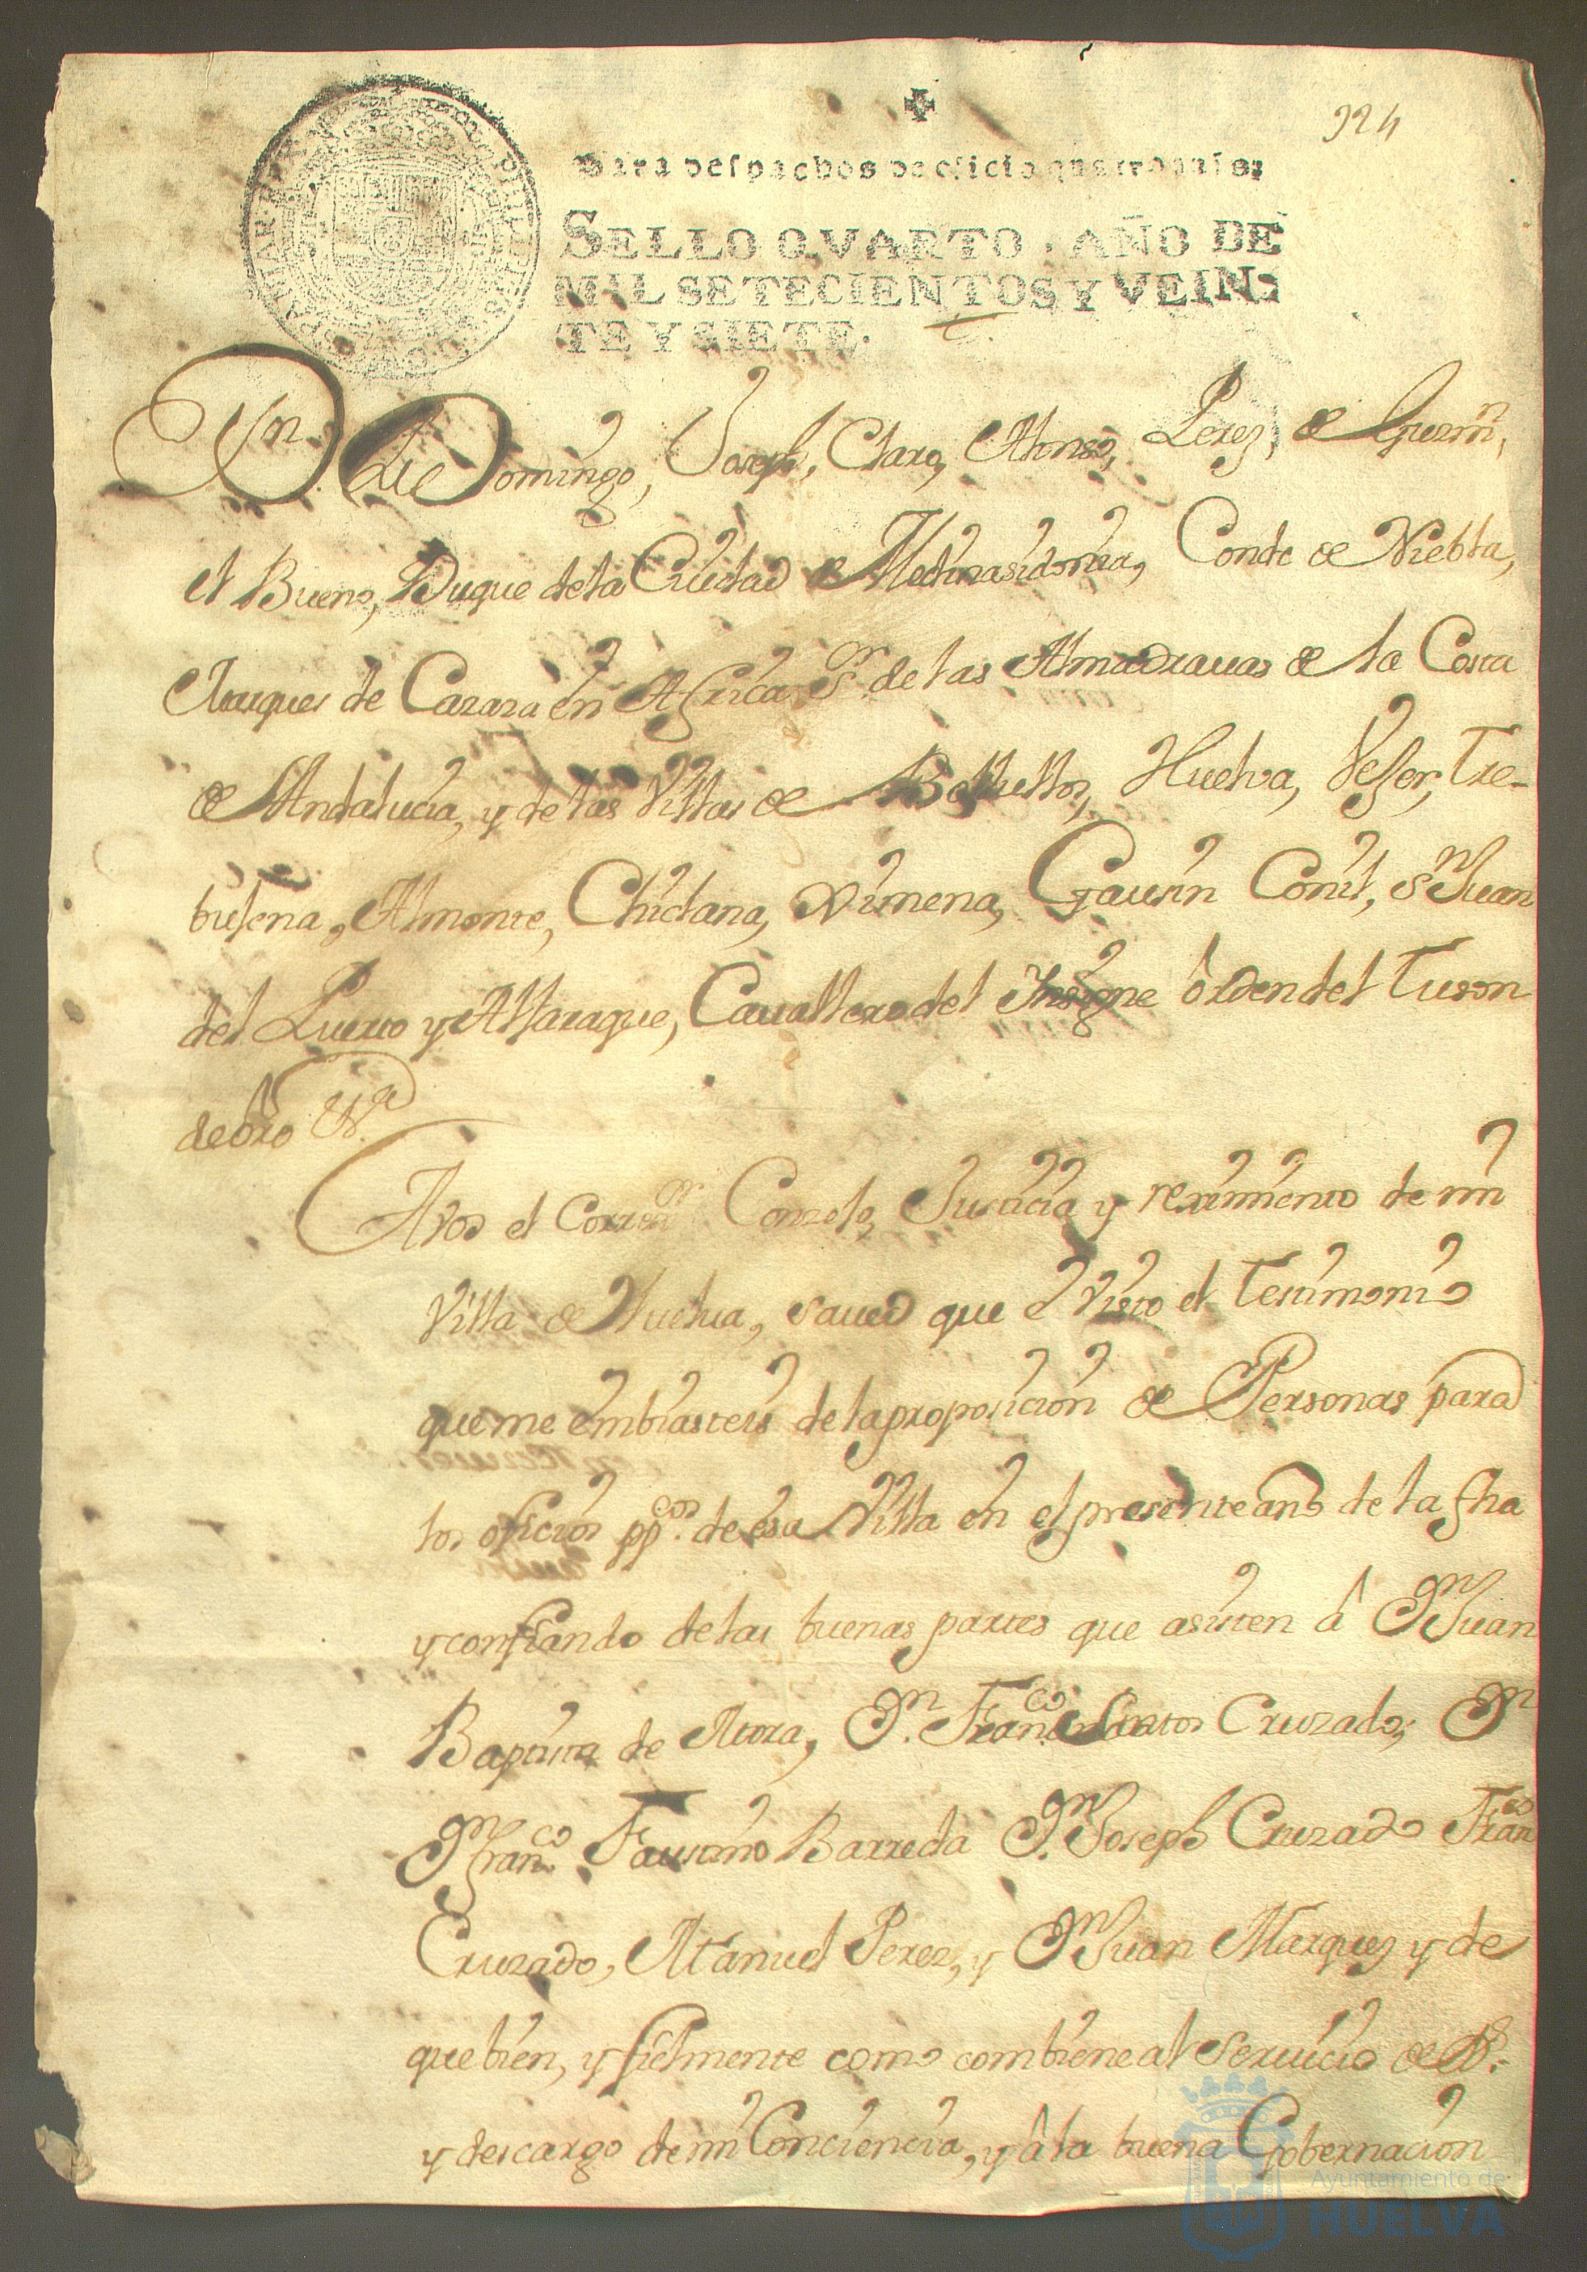 924
Para despachos de oficio quatro mrs:
SELLO QVARTO, AÑO DE
MIL SETECIENTOS Y VEIN-
TE Y SIETE.
Dn. Domingo, Joseph, Claro, Alonso, Perez, de Guzmn,
el Bueno, Duque de la Ciudad de Medinasidonia, Conde de Niebla,
Marques de Cazaza en Africa Sor. de las Almadrauas de la Costa
de Andalucia, y de las Villas de Bollullos, Huelva, Vejer, Tre-
bujena, Almonte, Chiclana, Ximena, Gausin Conil, Sn Juan
del Puerto y Alfaraque, Cauallero del Insigne orden del Tuson
de oro
A vos el Correxor Conzejo, Justicia y reximiento de mi
Villa de Huelua, Saued que e visto el Testimonio
que me embiasteis de la proposicion de Personas para
los oficios ppcos. de esa Villa en el presente año de la fha
y confiando de las buenas partes que asisten â Dn Juan
Baptista de Mora, Dn. Franco. Santos Cruzado, Dn
Dn Franco. Faustino Barreda Dn. Joseph Cruzado Franco
Cruzado, Manuel Perez, y Dn Juan Marquez y de
que bien, y fielmente como combiene al Seruicio de Ds.
y descargo de mi Conciencia, y â la buena Gobernacion
Ayuntamiento de
HUELVA